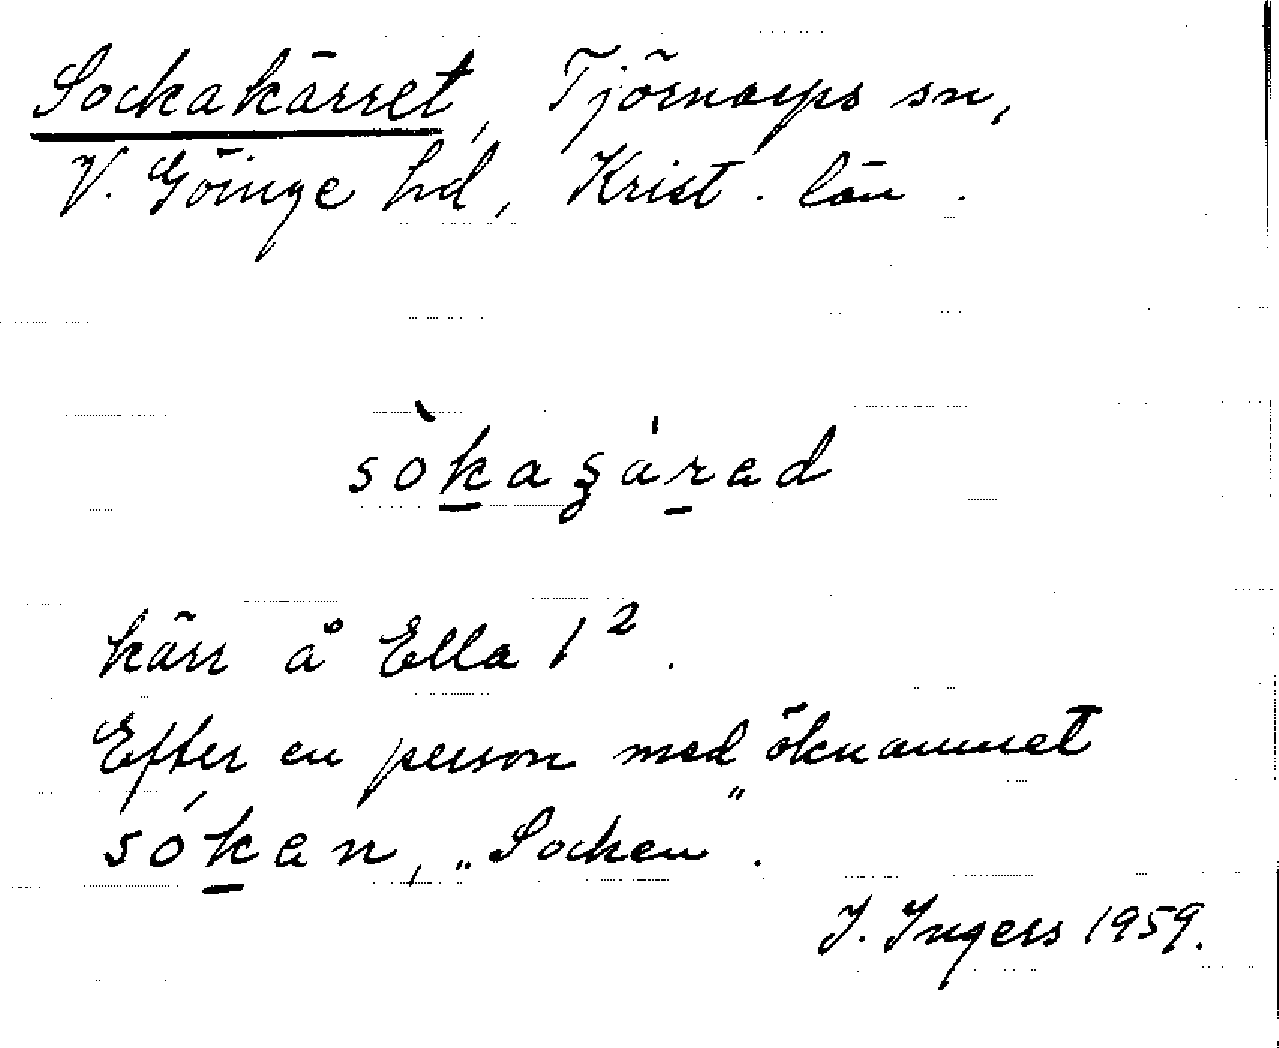 Sockakärret, Tjörnarps sn,
V. Göinge hd, Krist. län.
sòkaʂárad
kärr å Ella 1².
Efter en person med öknamnet
sókan, „Socken”.
I. Ingers 1959.